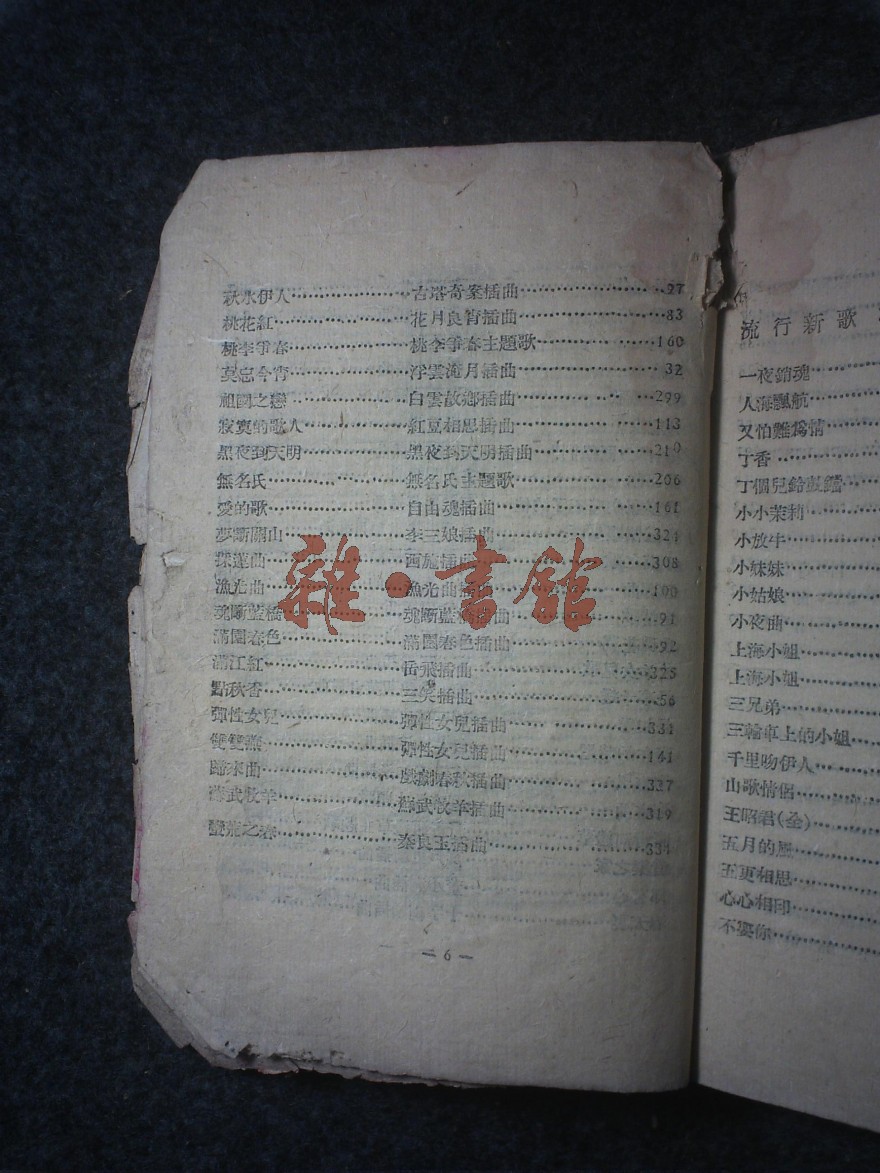 秋水伊人…………古塔奇案插曲…………27
桃花紅…………花月良宵插曲…………83
桃李爭春…………桃李爭春主題歌…………160
莫忘今宵…………浮雲掩月插曲…………32
祖國之戀…………白雲故鄉插曲…………299
寂寞的歌人…………紅豆相思插曲…………113
黑夜到天明…………黑夜到天明插曲…………210
無名氏…………無名氏主題歌…………206
愛的歌…………自由魂插曲…………161
夢斷關山…………李三娘插曲…………321
採蓮曲…………西施插曲…………308
漁光曲…………漁光曲插曲…………100
魂斷藍橋…………魂斷藍橋插曲…………91
滿園春色…………滿園春色插曲…………92
滿江紅…………岳飛插曲…………325
點秋香…………三笑插曲…………56
彈性女兒…………彈性女兒插曲…………331
雙雙燕…………彈性女兒插曲…………141
歸來曲…………戲劇春秋插曲…………327
蘇武牧羊…………蘇武牧羊插曲…………319
之春…………秦良玉插曲…………334
— 6 —
雜·書館
流行新歌
一夜銷魂
人海飄航
又怕難為情
丁香
丁個兒鈴
小小茉莉
小放牛
小妹妹
小姑娘
小夜曲
上海小姐
上海小姐
三兄弟
三輪車上的小姐
千里吻伊人
山歌情侶
王昭君(全)
五月的風
五更相思
心心相印
不要你